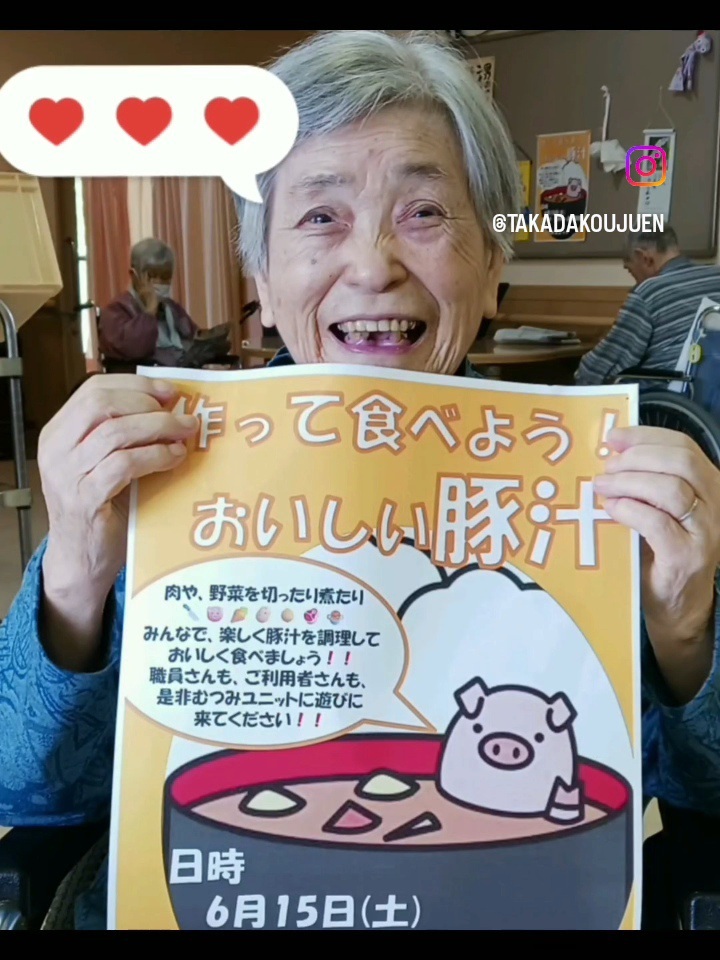 @TAKADAKOUJUEN
作って食べよう！
おいしい豚汁
肉や、野菜を切ったり煮たり
みんなで、楽しく豚汁を調理して
おいしく食べましょう！！
職員さんも、ご利用者さんも、
是非むつみユニットに遊びに
来てください！！
日時
6月15日(土)